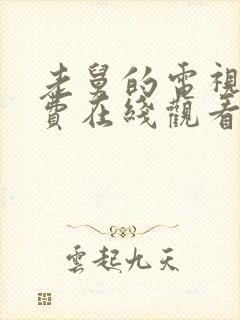 老舅的電視
費在綫觀看
雲起九天